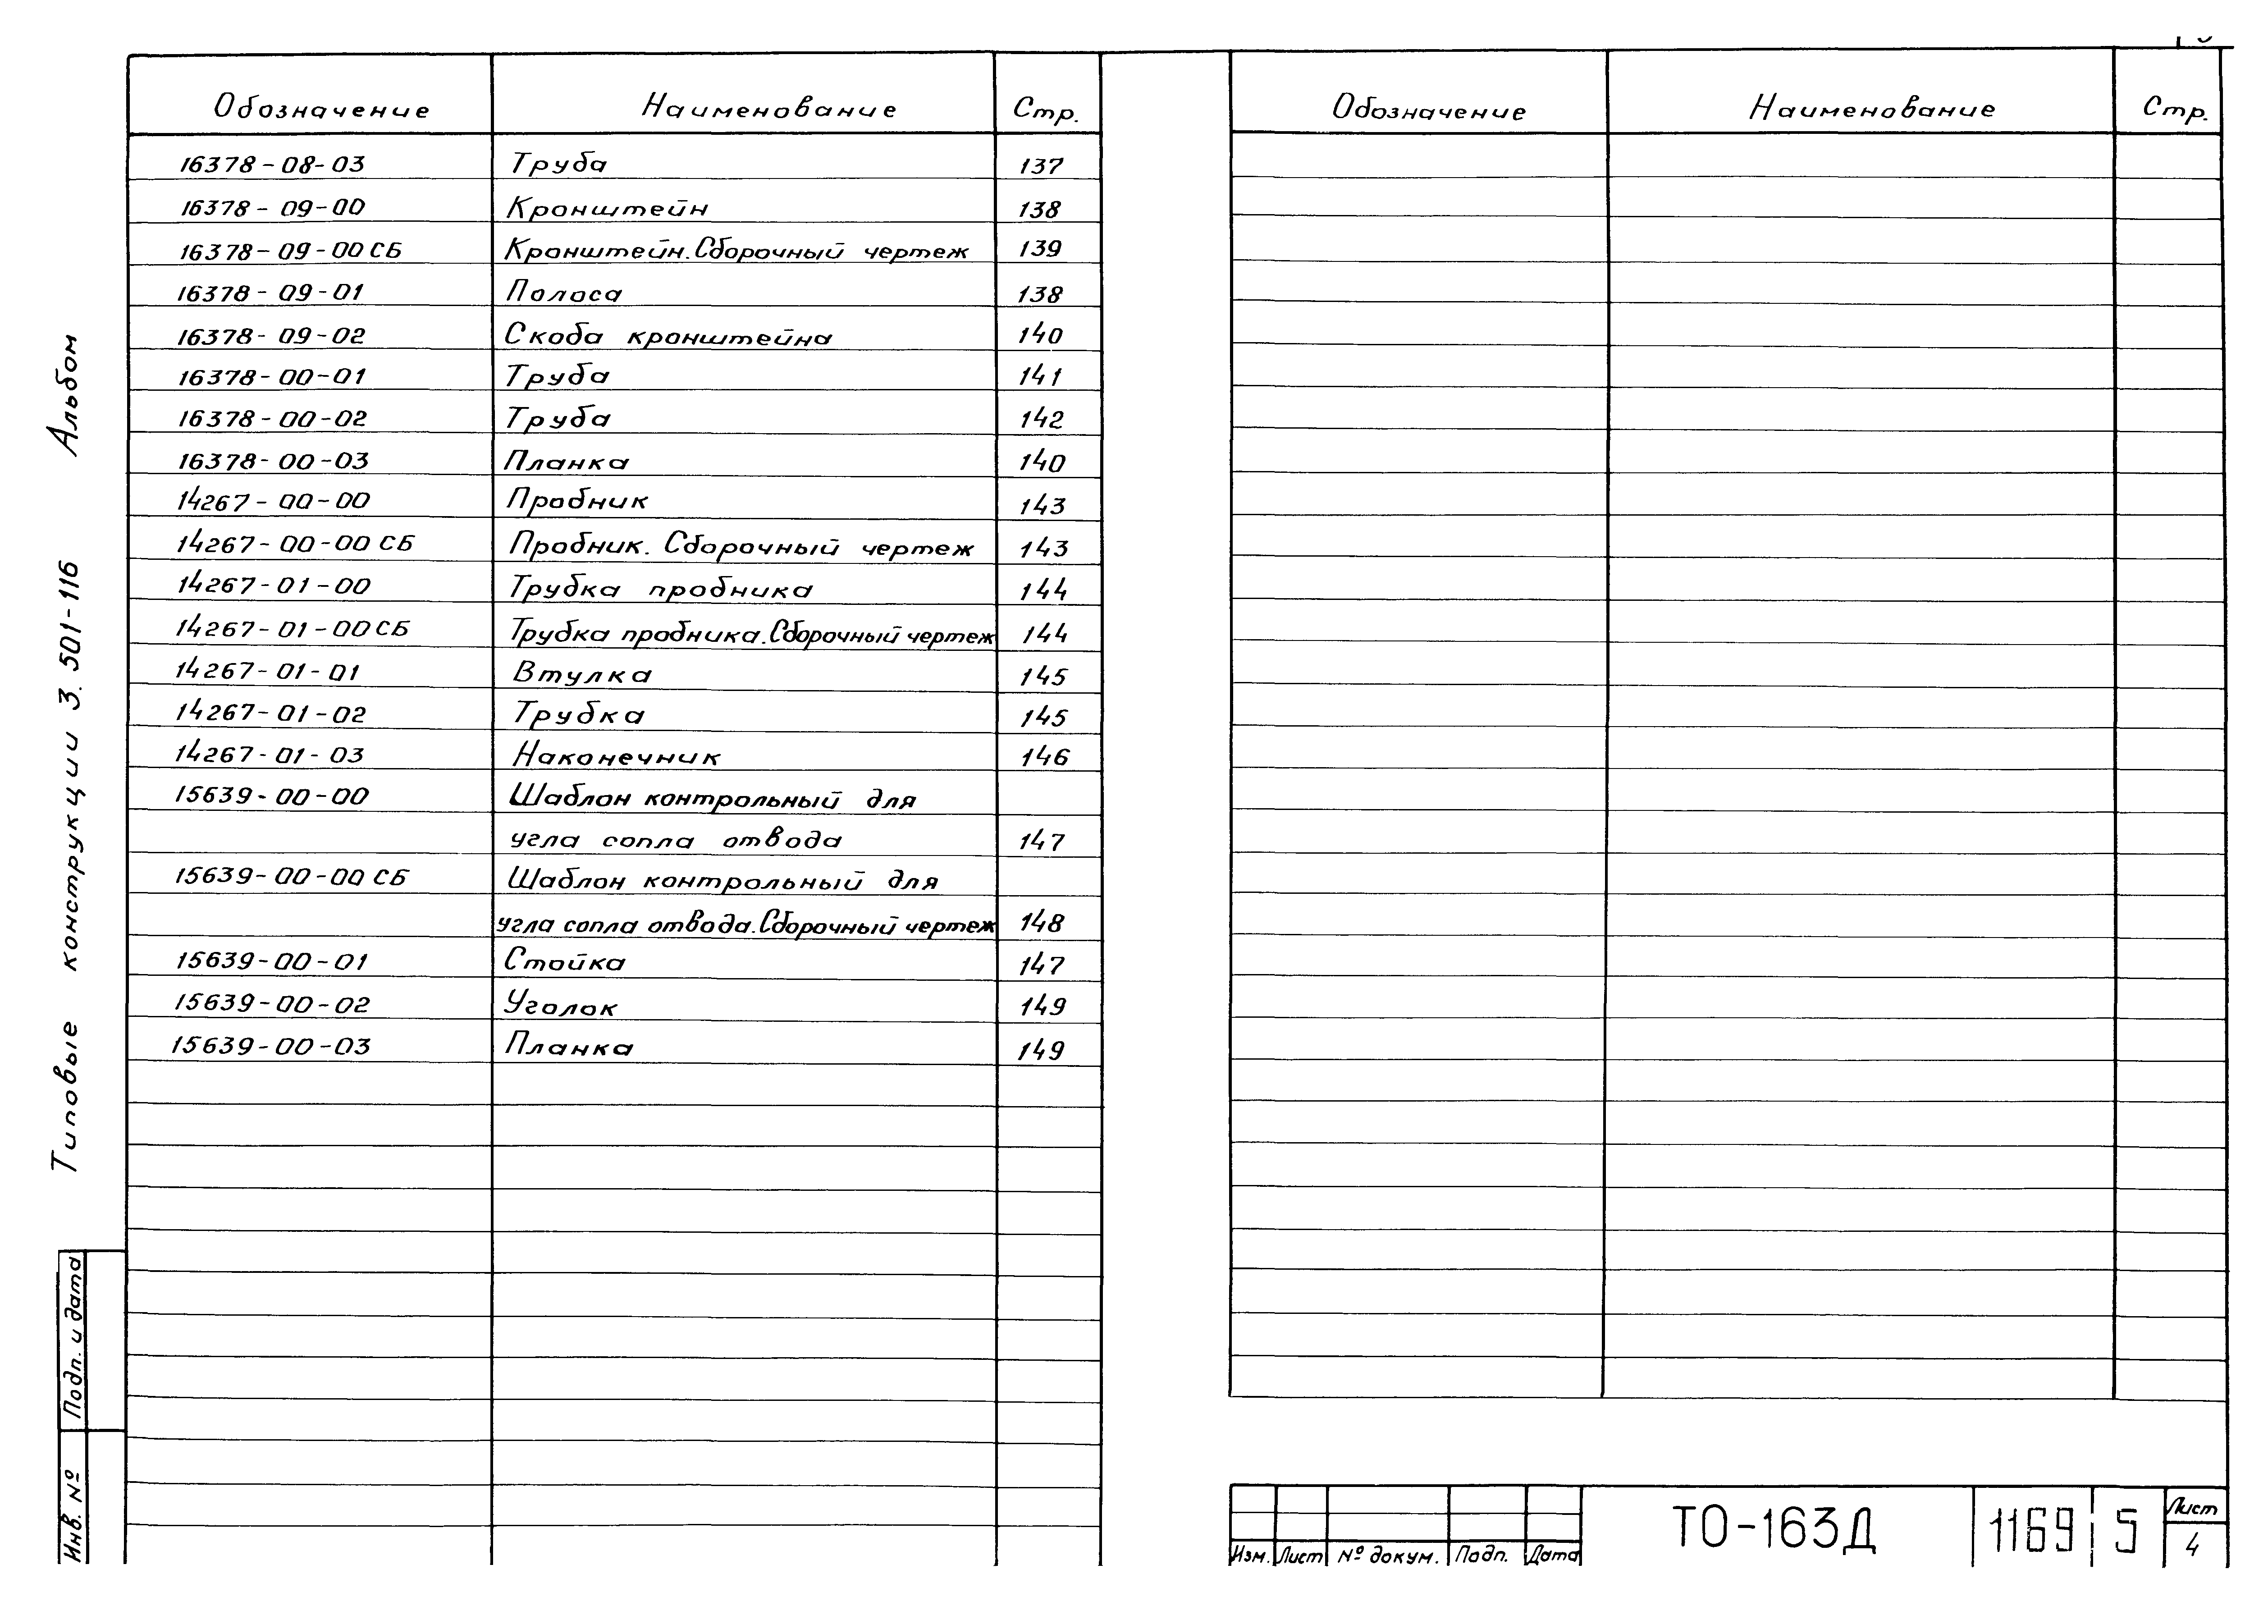 Обозначение Наименование Стр.
16378-08-03 Труба 137
16378-09-00 Кронштейн 138
16378-09-00 СБ Кронштейн. Сборочный чертеж 139
16378-09-01 Полоса 138
16378-09-02 Скоба кронштейна 140
16378-00-01 Труба 141
16378-00-02 Труба 142
16378-00-03 Планка 140
14267-00-00 Пробник 143
14267-00-00 СБ Пробник. Сборочный чертеж 143
14267-01-00 Трубка пробника 144
14267-01-00 СБ Трубка пробника. Сборочный чертеж 144
14267-01-01 Втулка 145
14267-01-02 Трубка 145
14267-01-03 Наконечник 146
15639-00-00 Шаблон контрольный для
угла сопла отвода 147
15639-00-00 СБ Шаблон контрольный для
угла сопла отвода. Сборочный чертеж 148
15639-00-01 Стойка 147
15639-00-02 Уголок 149
15639-00-03 Планка 149
Обозначение Наименование Стр.
Типовые конструкции 3.501-116 Альбом
Подп. и дата
Инв. №
Изм. Лист № докум. Подп. Дата
ТО-163Д 1169 5
Лист
4